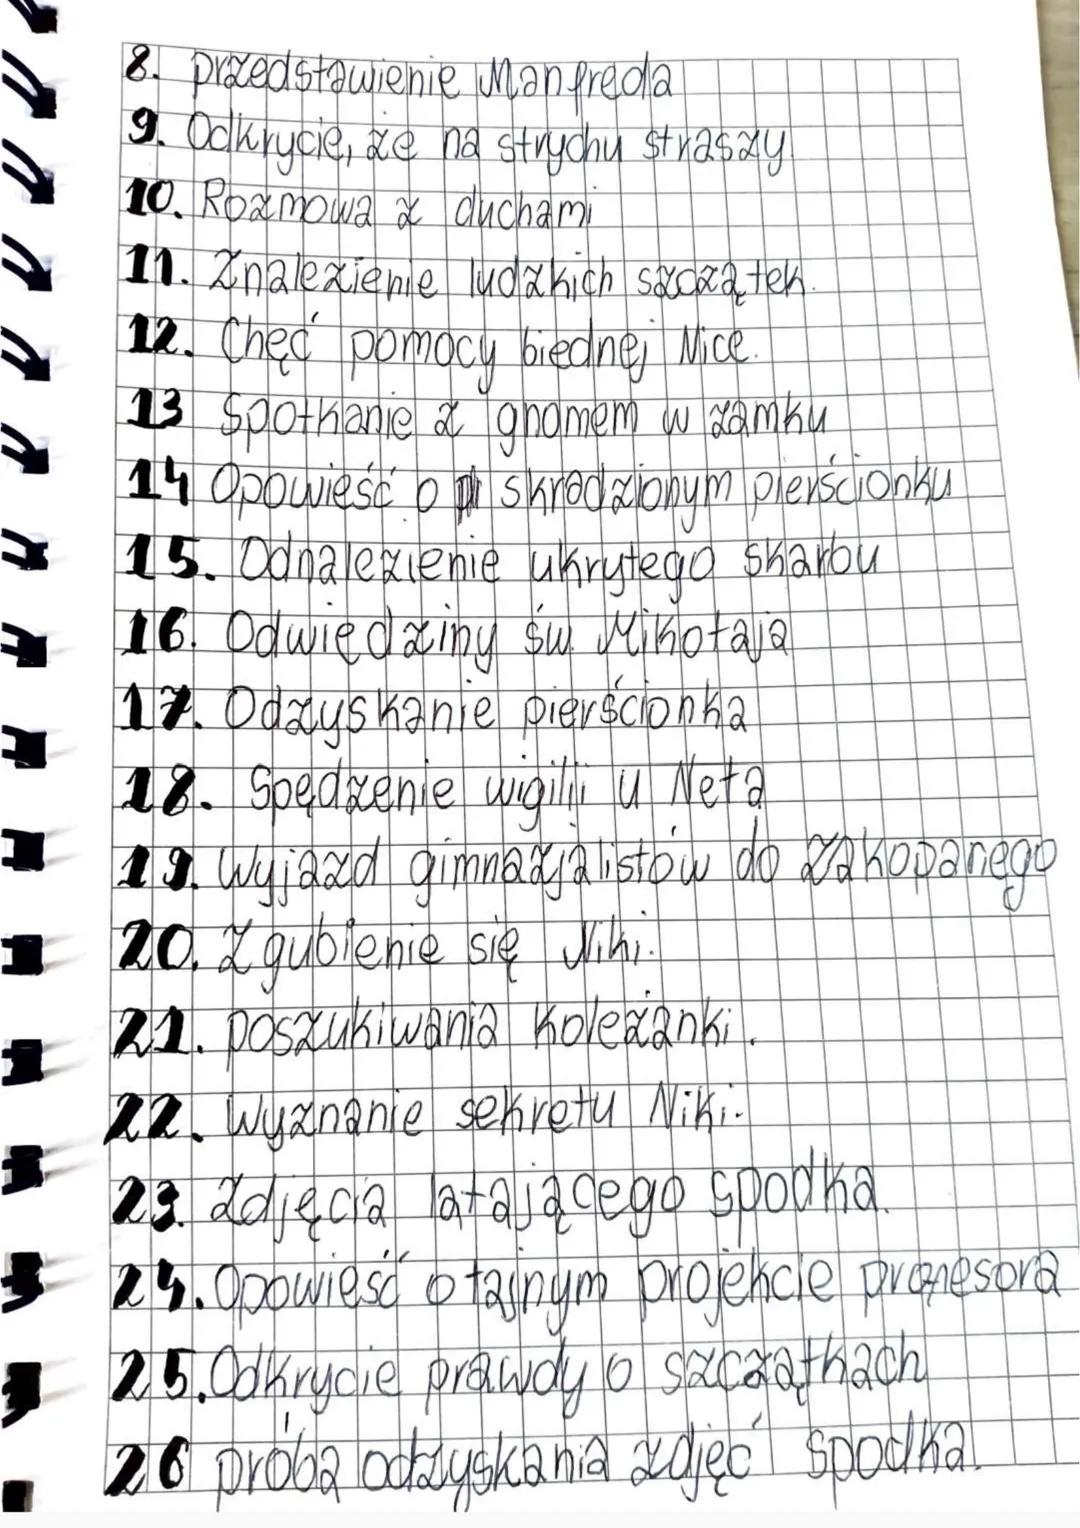 8. przedstawienie Manfreda
9. Odkrycie, że na strychu straszy
10. Rozmowa z duchami
11. Znalezienie ludzkich szczątek.
12. Chęć pomocy biednej Nice.
13 Spotkanie z gnomem w zamku
14 Opowieść o skradzionym pierścionku
15. Odnalezienie ukrytego skarbu
16. Odwiedziny św. Mikołaja
17. Odzyskanie pierścionka
18. Spędzenie wigilii u Neta
19. Wyjazd gimnazjalistów do Zakopanego
20. Zgubienie się Niki.
21. poszukiwania koleżanki.
22. Wyznanie sekretu Niki.
23. Zdjęcia latającego spodka.
24. Opowieść o tajnym projekcie profesora
25. Odkrycie prawdy o szczątkach
26 próba odzyskania zdjęć spodka.